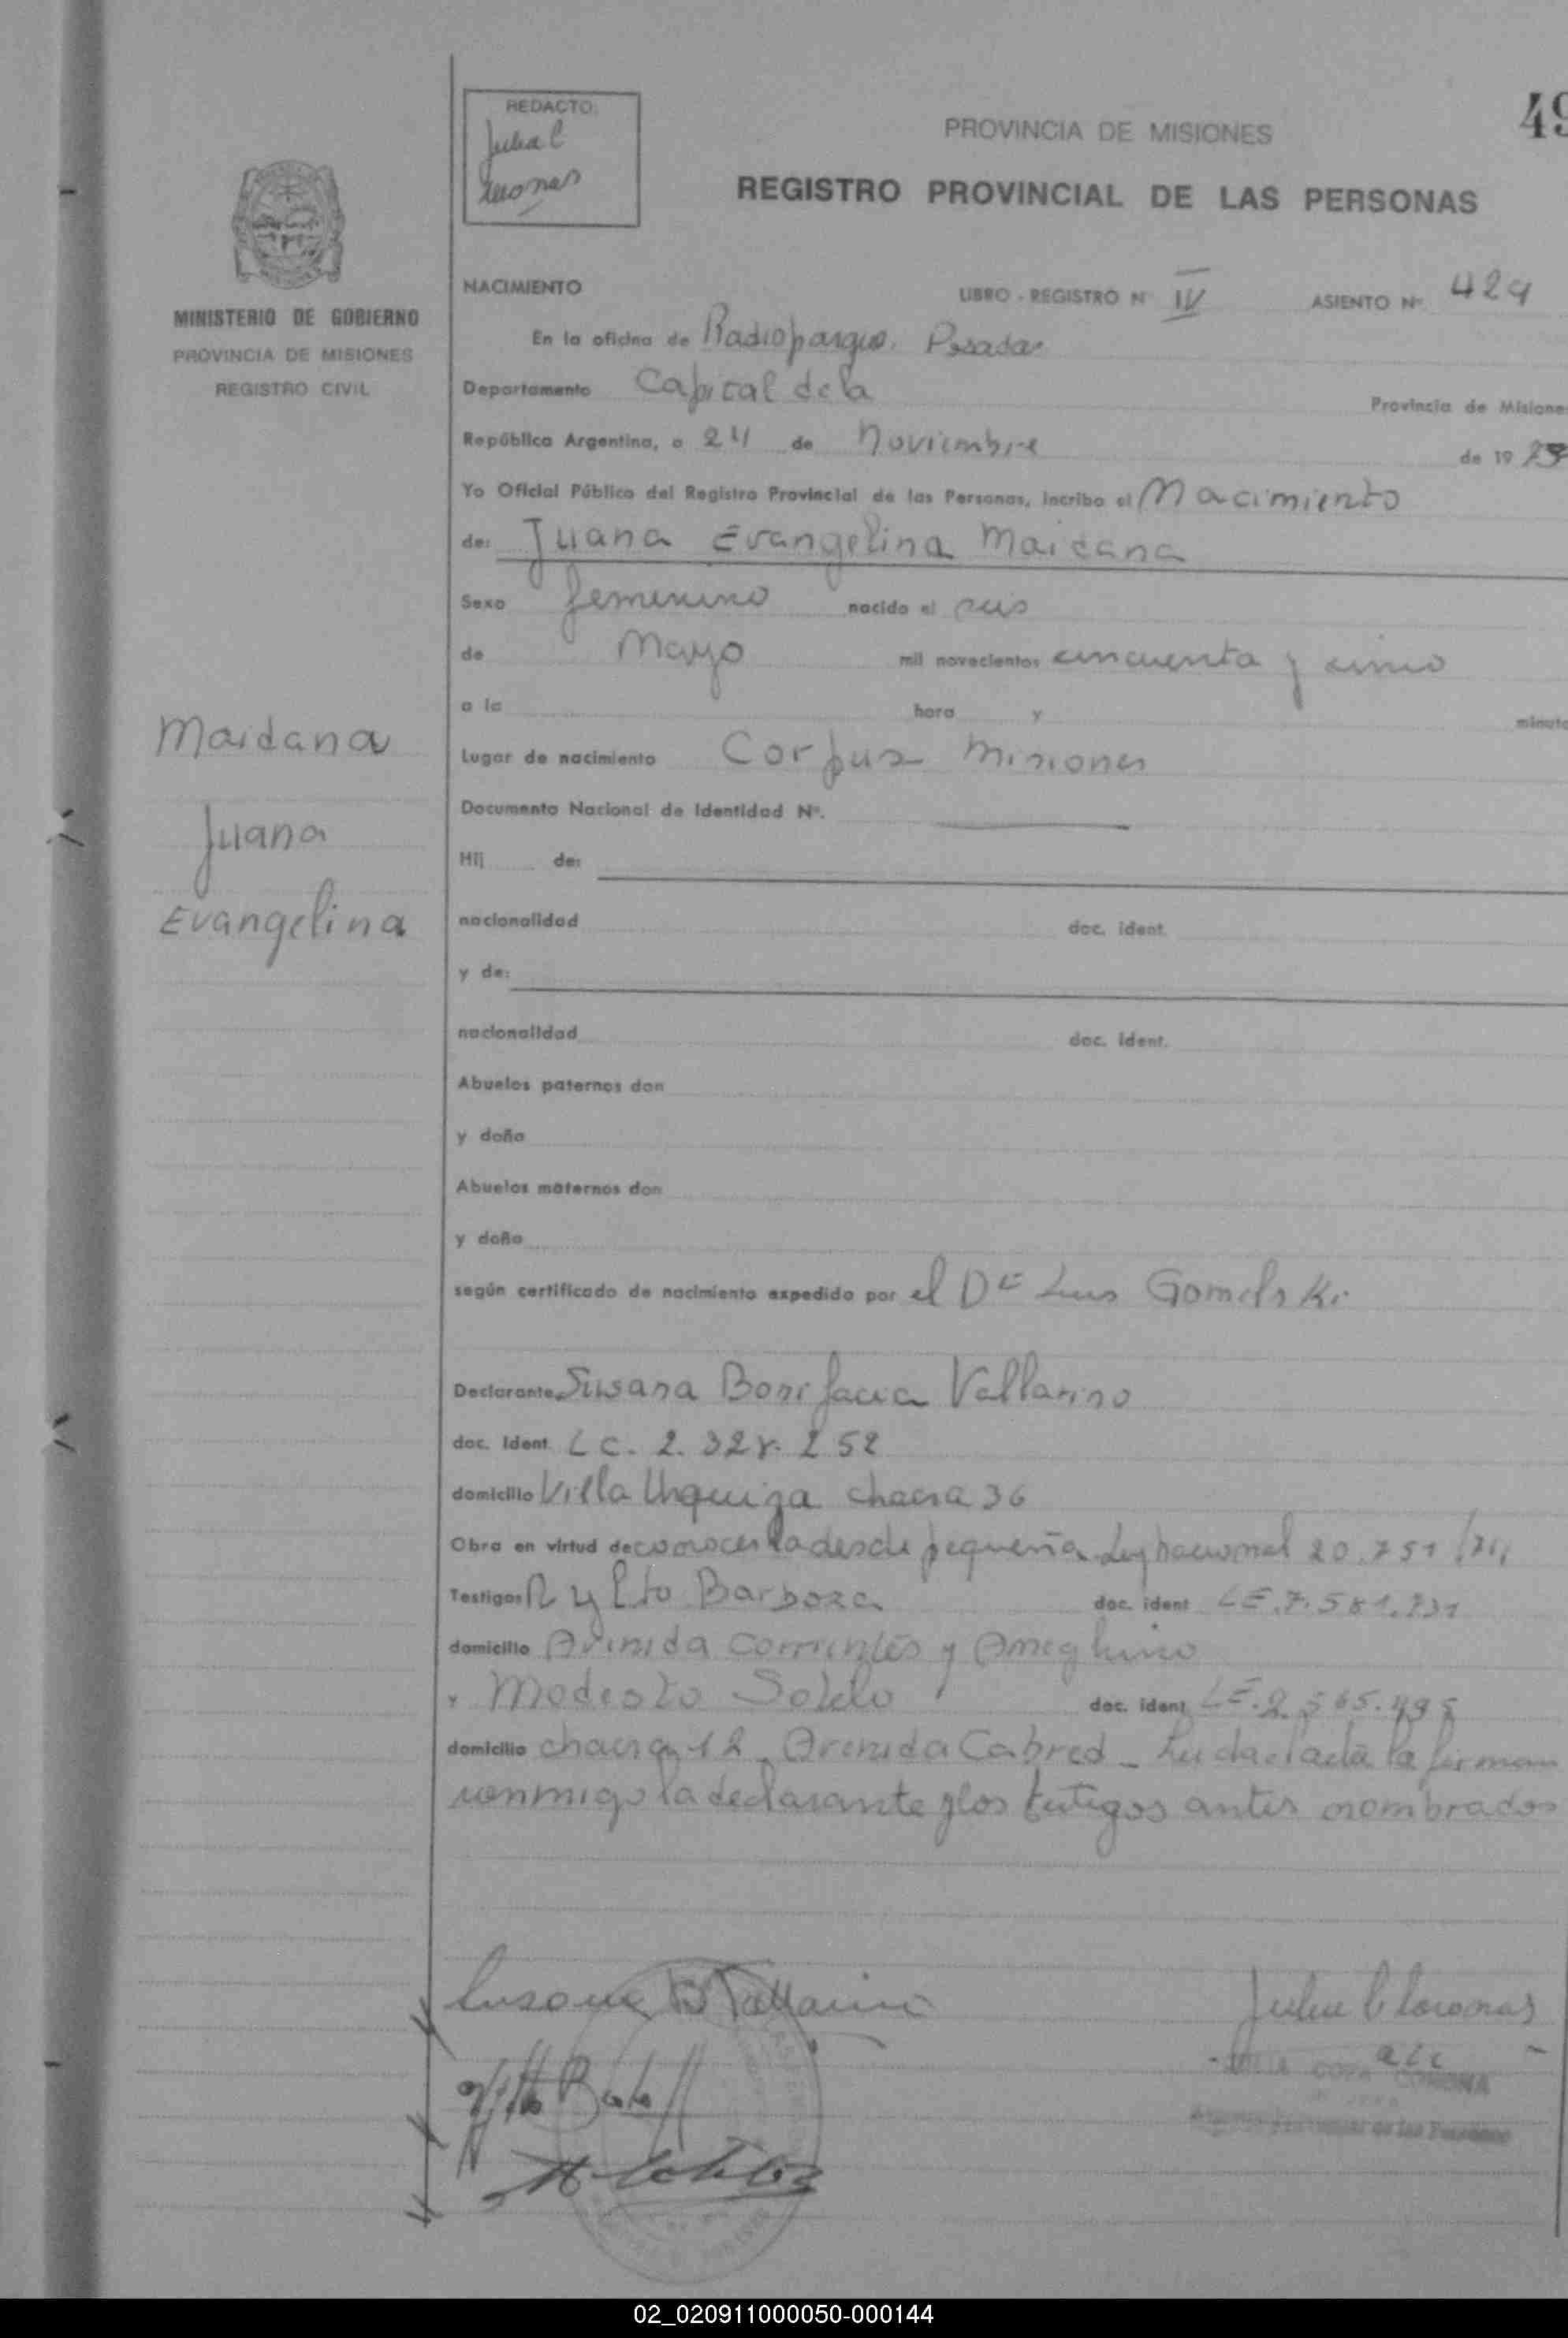 49
REDACTO:
Julia C
PROVINCIA DE MISIONES
REGISTRO PROVINCIAL DE LAS PERSONAS
MINISTERIO DE GOBIERNO
PROVINCIA DE MISIONES
REGISTRO CIVIL
NACIMIENTO LIBRO - REGISTRO Nº IV ASIENTO Nº 424
En la oficina de Radioparque. Posadas
Departamento Capital de la Provincia de Misione
República Argentina, a 24 de Noviembre de 19
Yo Oficial Público del Registro Provincial de las Personas, incribo el Nacimiento
de: Juana Evangelina Maidana
Sexo femenino nacido el seis
de Mayo mil novecientos cincuenta y cinco
a la hora y minuto
Maidana
Juana
Evangelina
Lugar de nacimiento Corpus Misiones
Documento Nacional de Identidad Nº.
Hij de:
nacionalidad doc. ident.
y de:
nacionalidad doc. ident.
Abuelos paternos don
y doña
Abuelos maternos don
y doña
según certificado de nacimiento expedido por el Dr Luis Gomelski
Declarante Susana Bonifacia Vallarino
doc. Ident. LC. 2. 252
domicilio Villa Urquiza chacra 36
Obra en virtud de conocerla desde pequeña Ley nacional 20.751
Testigos Barboza doc. ident LE. 7.581.731
domicilio Avenida Corrientes y Ameghino
y Modesto Sotelo doc. ident LE. 2.565.495
domicilio chacra 12 Avenida Cabred - Leida el acta la firman
conmigo la declarante y los testigos antes nombrados
Susana B Vallarino
02_020911000050-000144